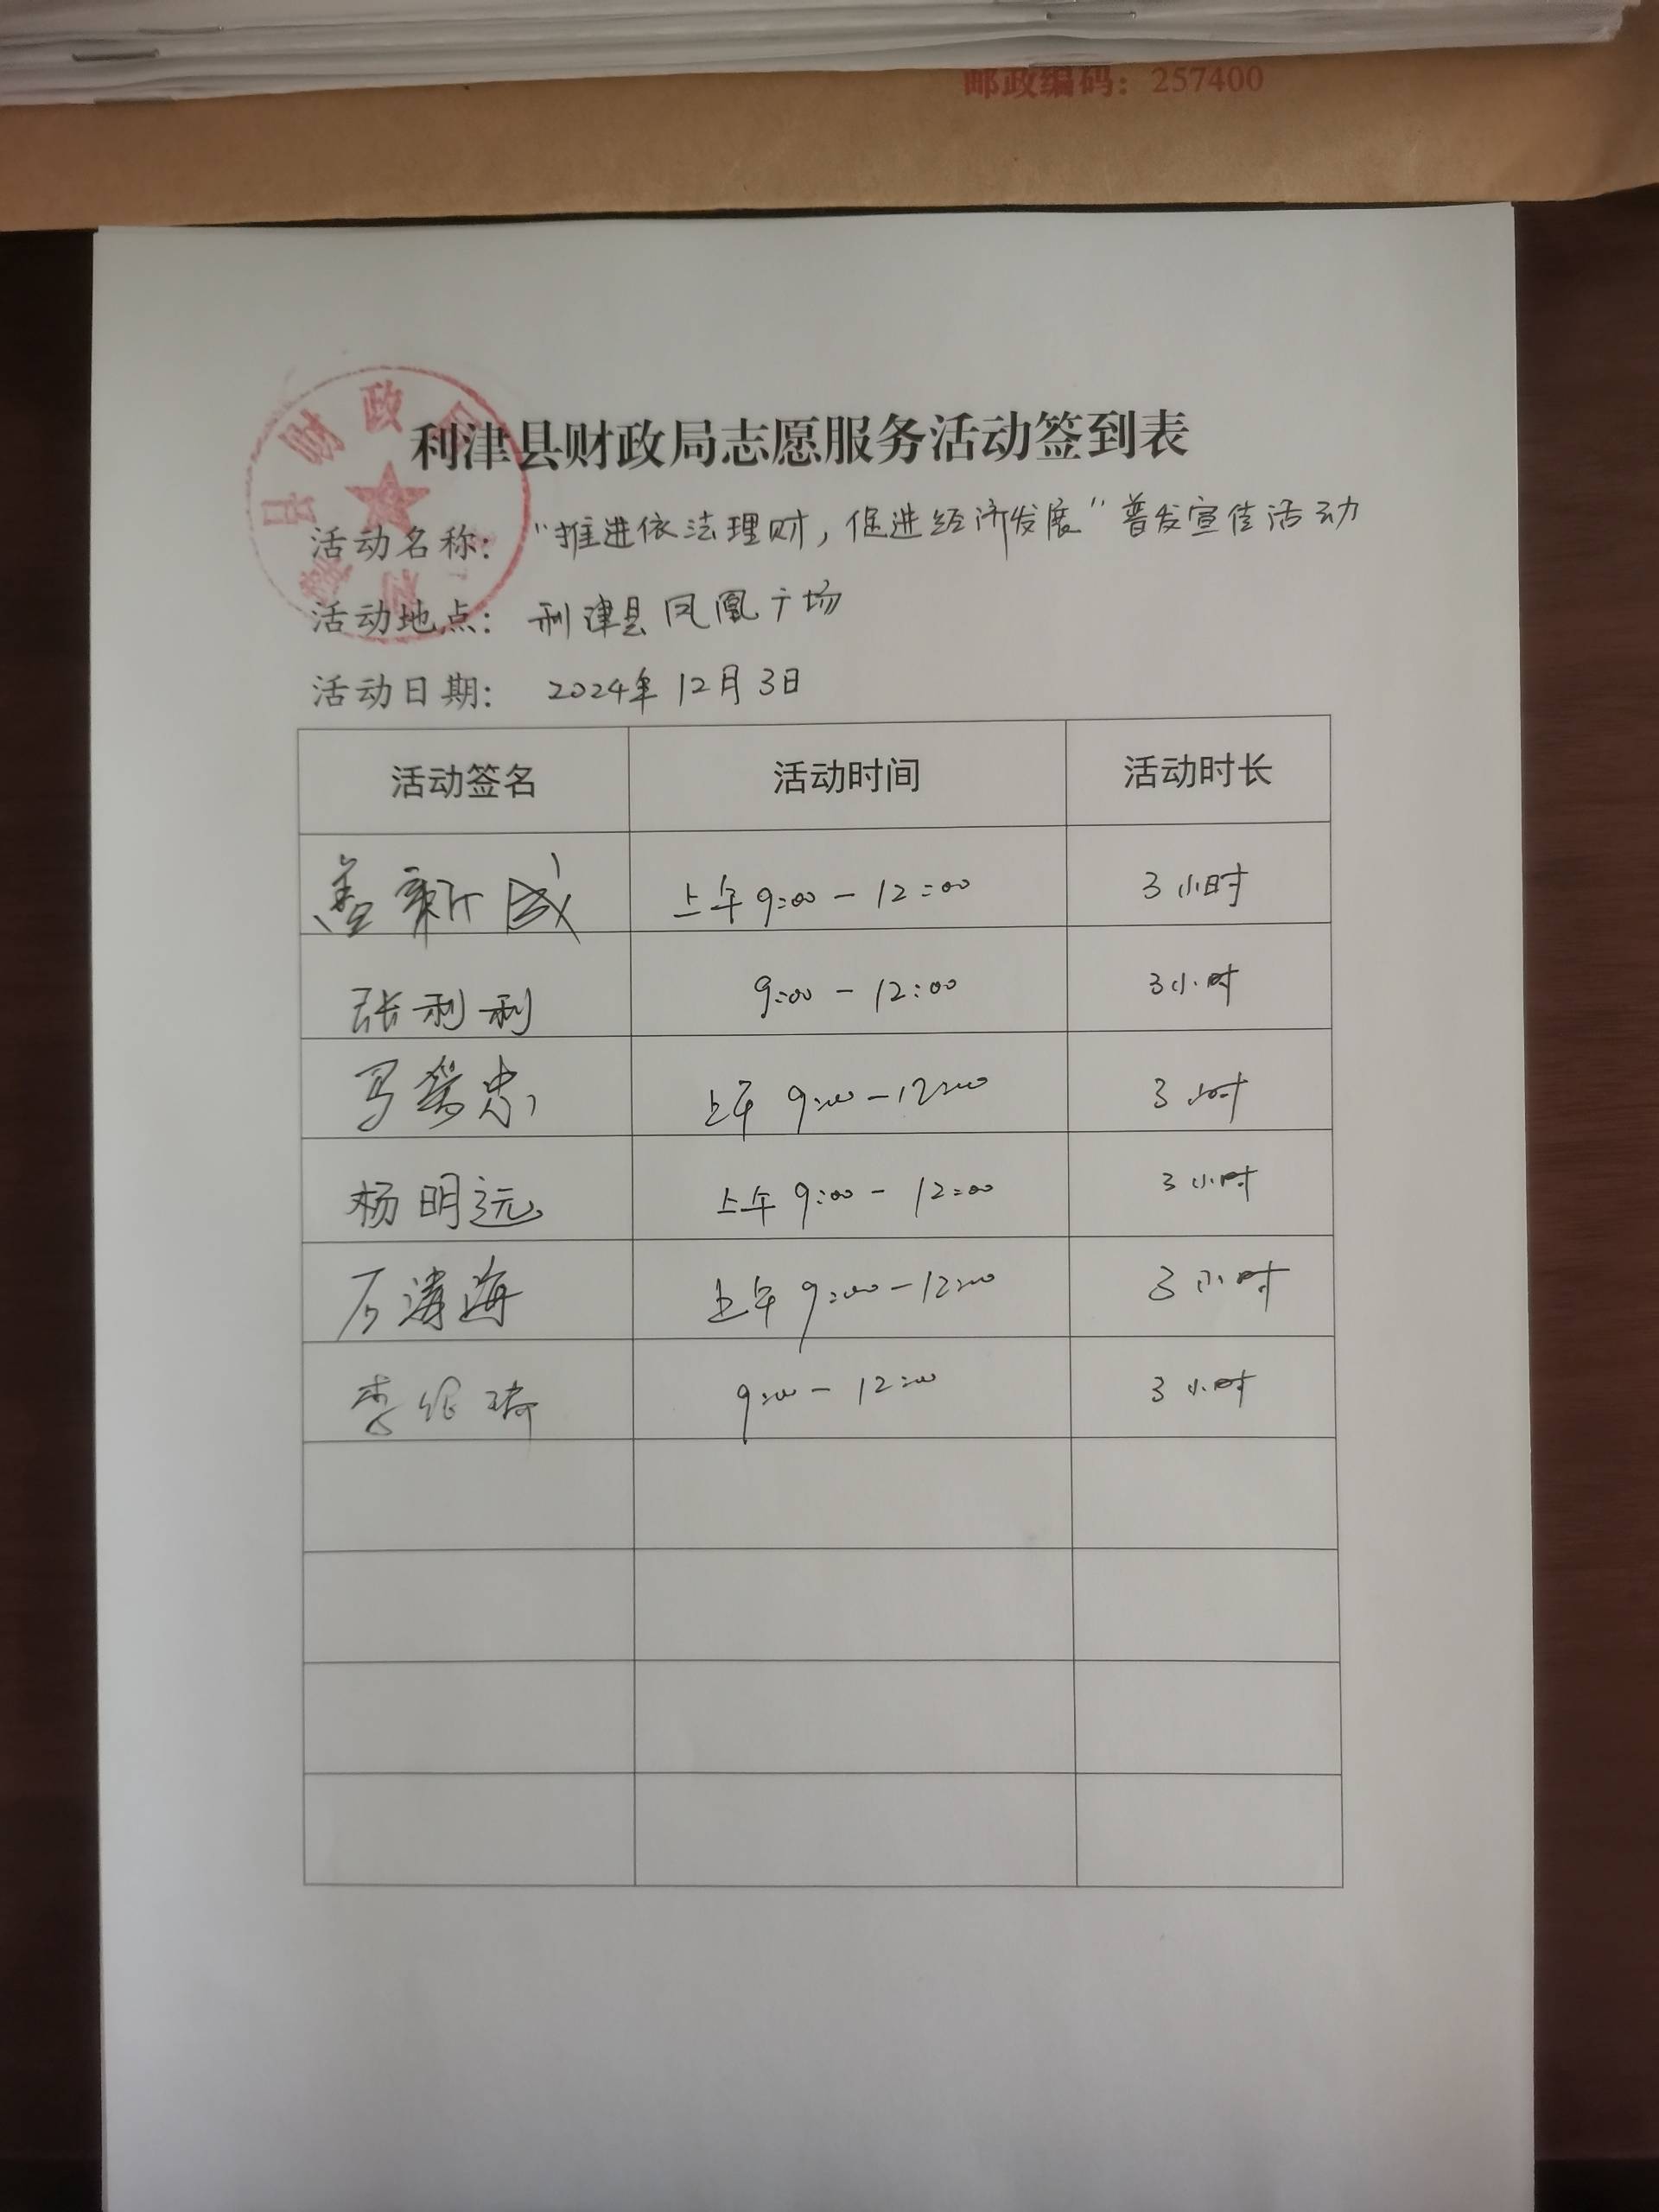 邮政编码：257400
利津县财政局志愿服务活动签到表
活动名称： “推进依法理财，促进经济发展”普发宣传活动
活动地点： 利津县凤凰广场
活动日期： 2024年12月3日
活动签名 活动时间 活动时长
新成 上午9:00-12:00 3小时
张利利 9:00-12:00 3小时
马荣忠 上午9:00-12:00 3小时
杨明远 上午9:00-12:00 3小时
石涛海 上午9:00-12:00 3小时
李绍琦 9:00-12:00 3小时